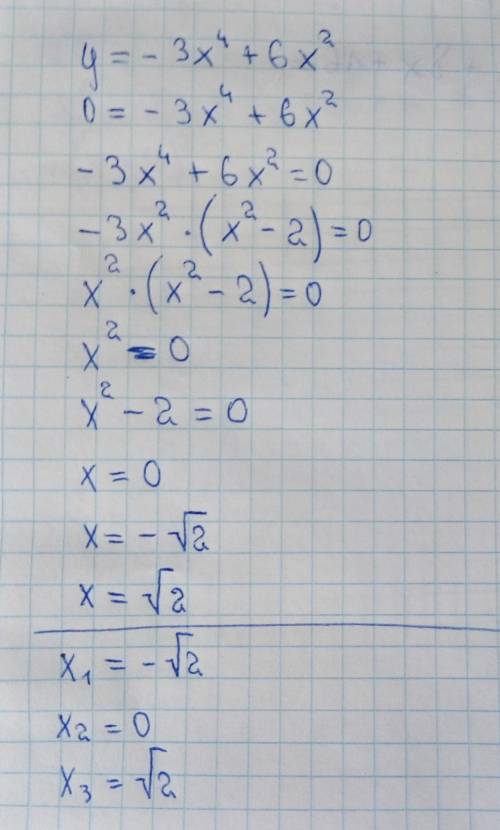 y = - 3x⁴ + 6x²
0 = - 3x⁴ + 6x²
- 3x⁴ + 6x² = 0
- 3x² · (x² - 2) = 0
x² · (x² - 2) = 0
x² = 0
x² - 2 = 0
x = 0
x = - √2
x = √2
x₁ = - √2
x₂ = 0
x₃ = √2